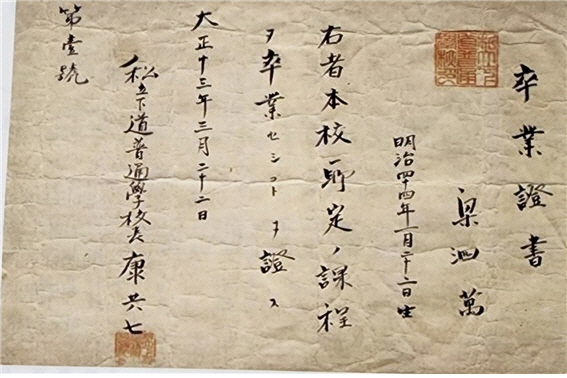 卒業證書
梁泗萬
明治四四年一月二十二日生
右者本校所定ノ課程
ヲ卒業セシコトヲ證ス
大正十三年三月二十二日
私立下道普通學校長 康共七
第壹號